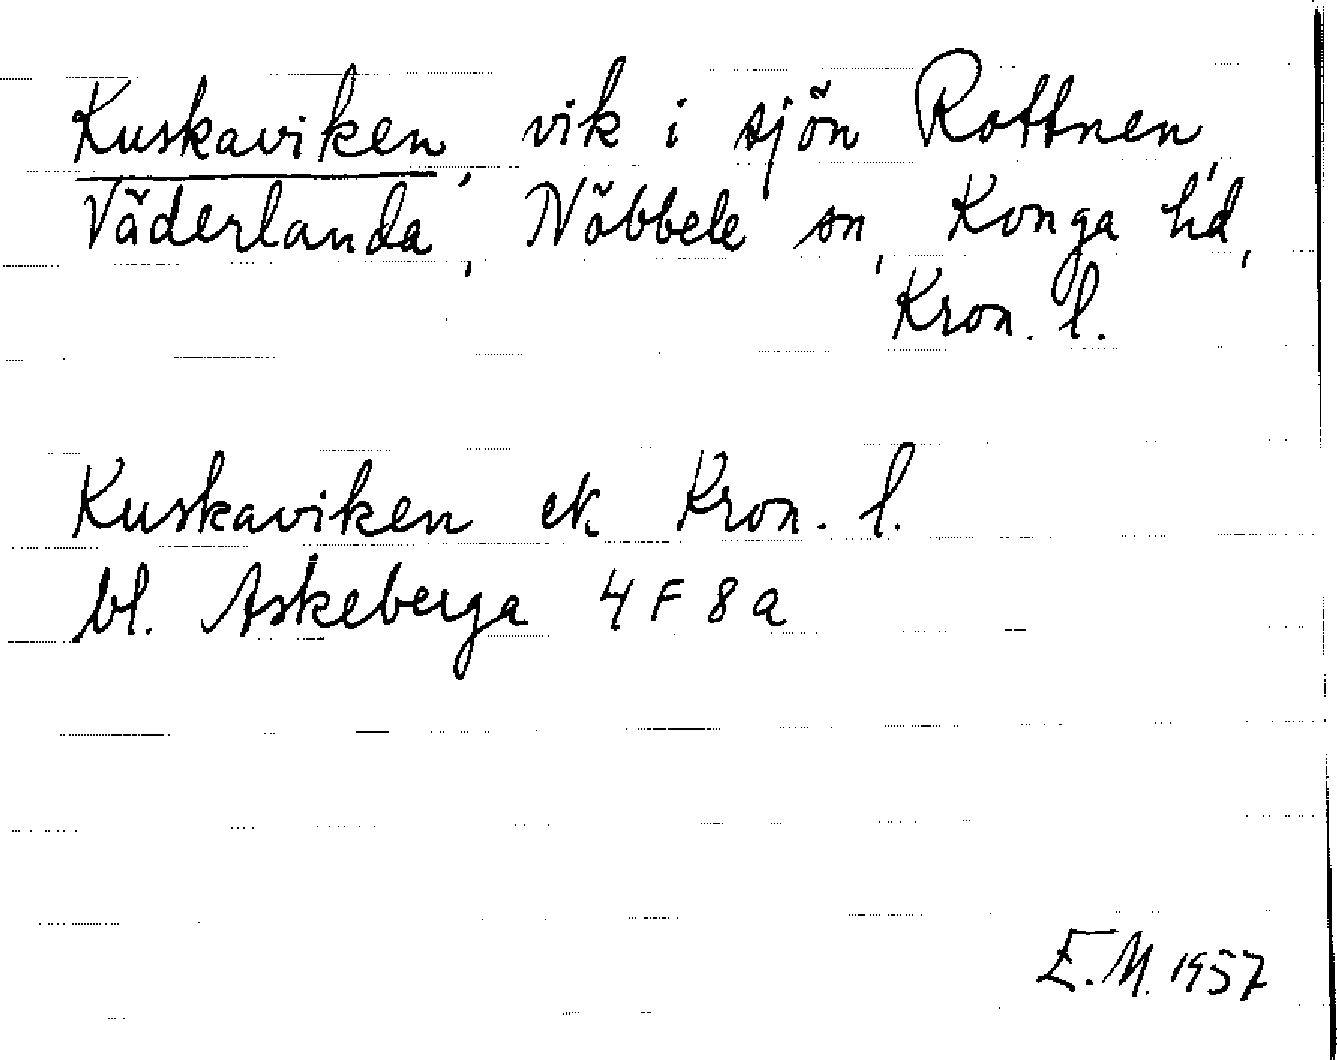 Kuskaviken, vik i sjön Rottnen,
Väderlanda, Nöbbele sn, Konga hd,
Kron. l.
Kuskaviken ek. Kron. l.
bl. Askeberga 4 F 8 a
E.M. 1957